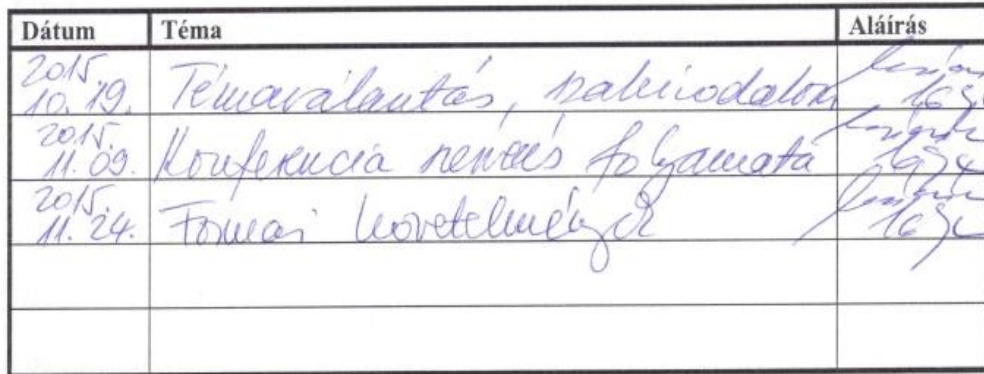 Dátum Téma Aláírás
2015.
10. 19. Témaválasztás, szakirodalom
2015.
11. 09. Konferencia szervezés folyamata
2015.
11. 24. Formai követelmények